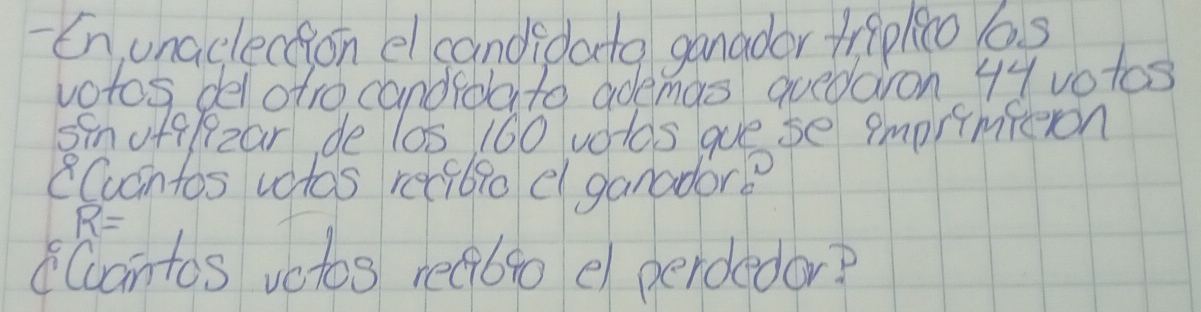 -En una elección el candidato ganador triplico los
votos del otro candidato ademas quedaron 44 votos
sin utilizar de los 160 votos que se imprimieron
¿Cuántos votos recibio el ganador?
R=
¿Cuantos votos recibio el perdedor?